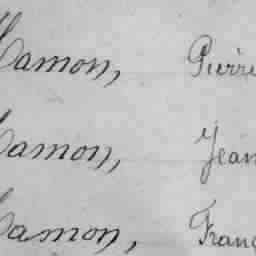 Hamon, Pierre
Hamon, Jean
Hamon, Franç